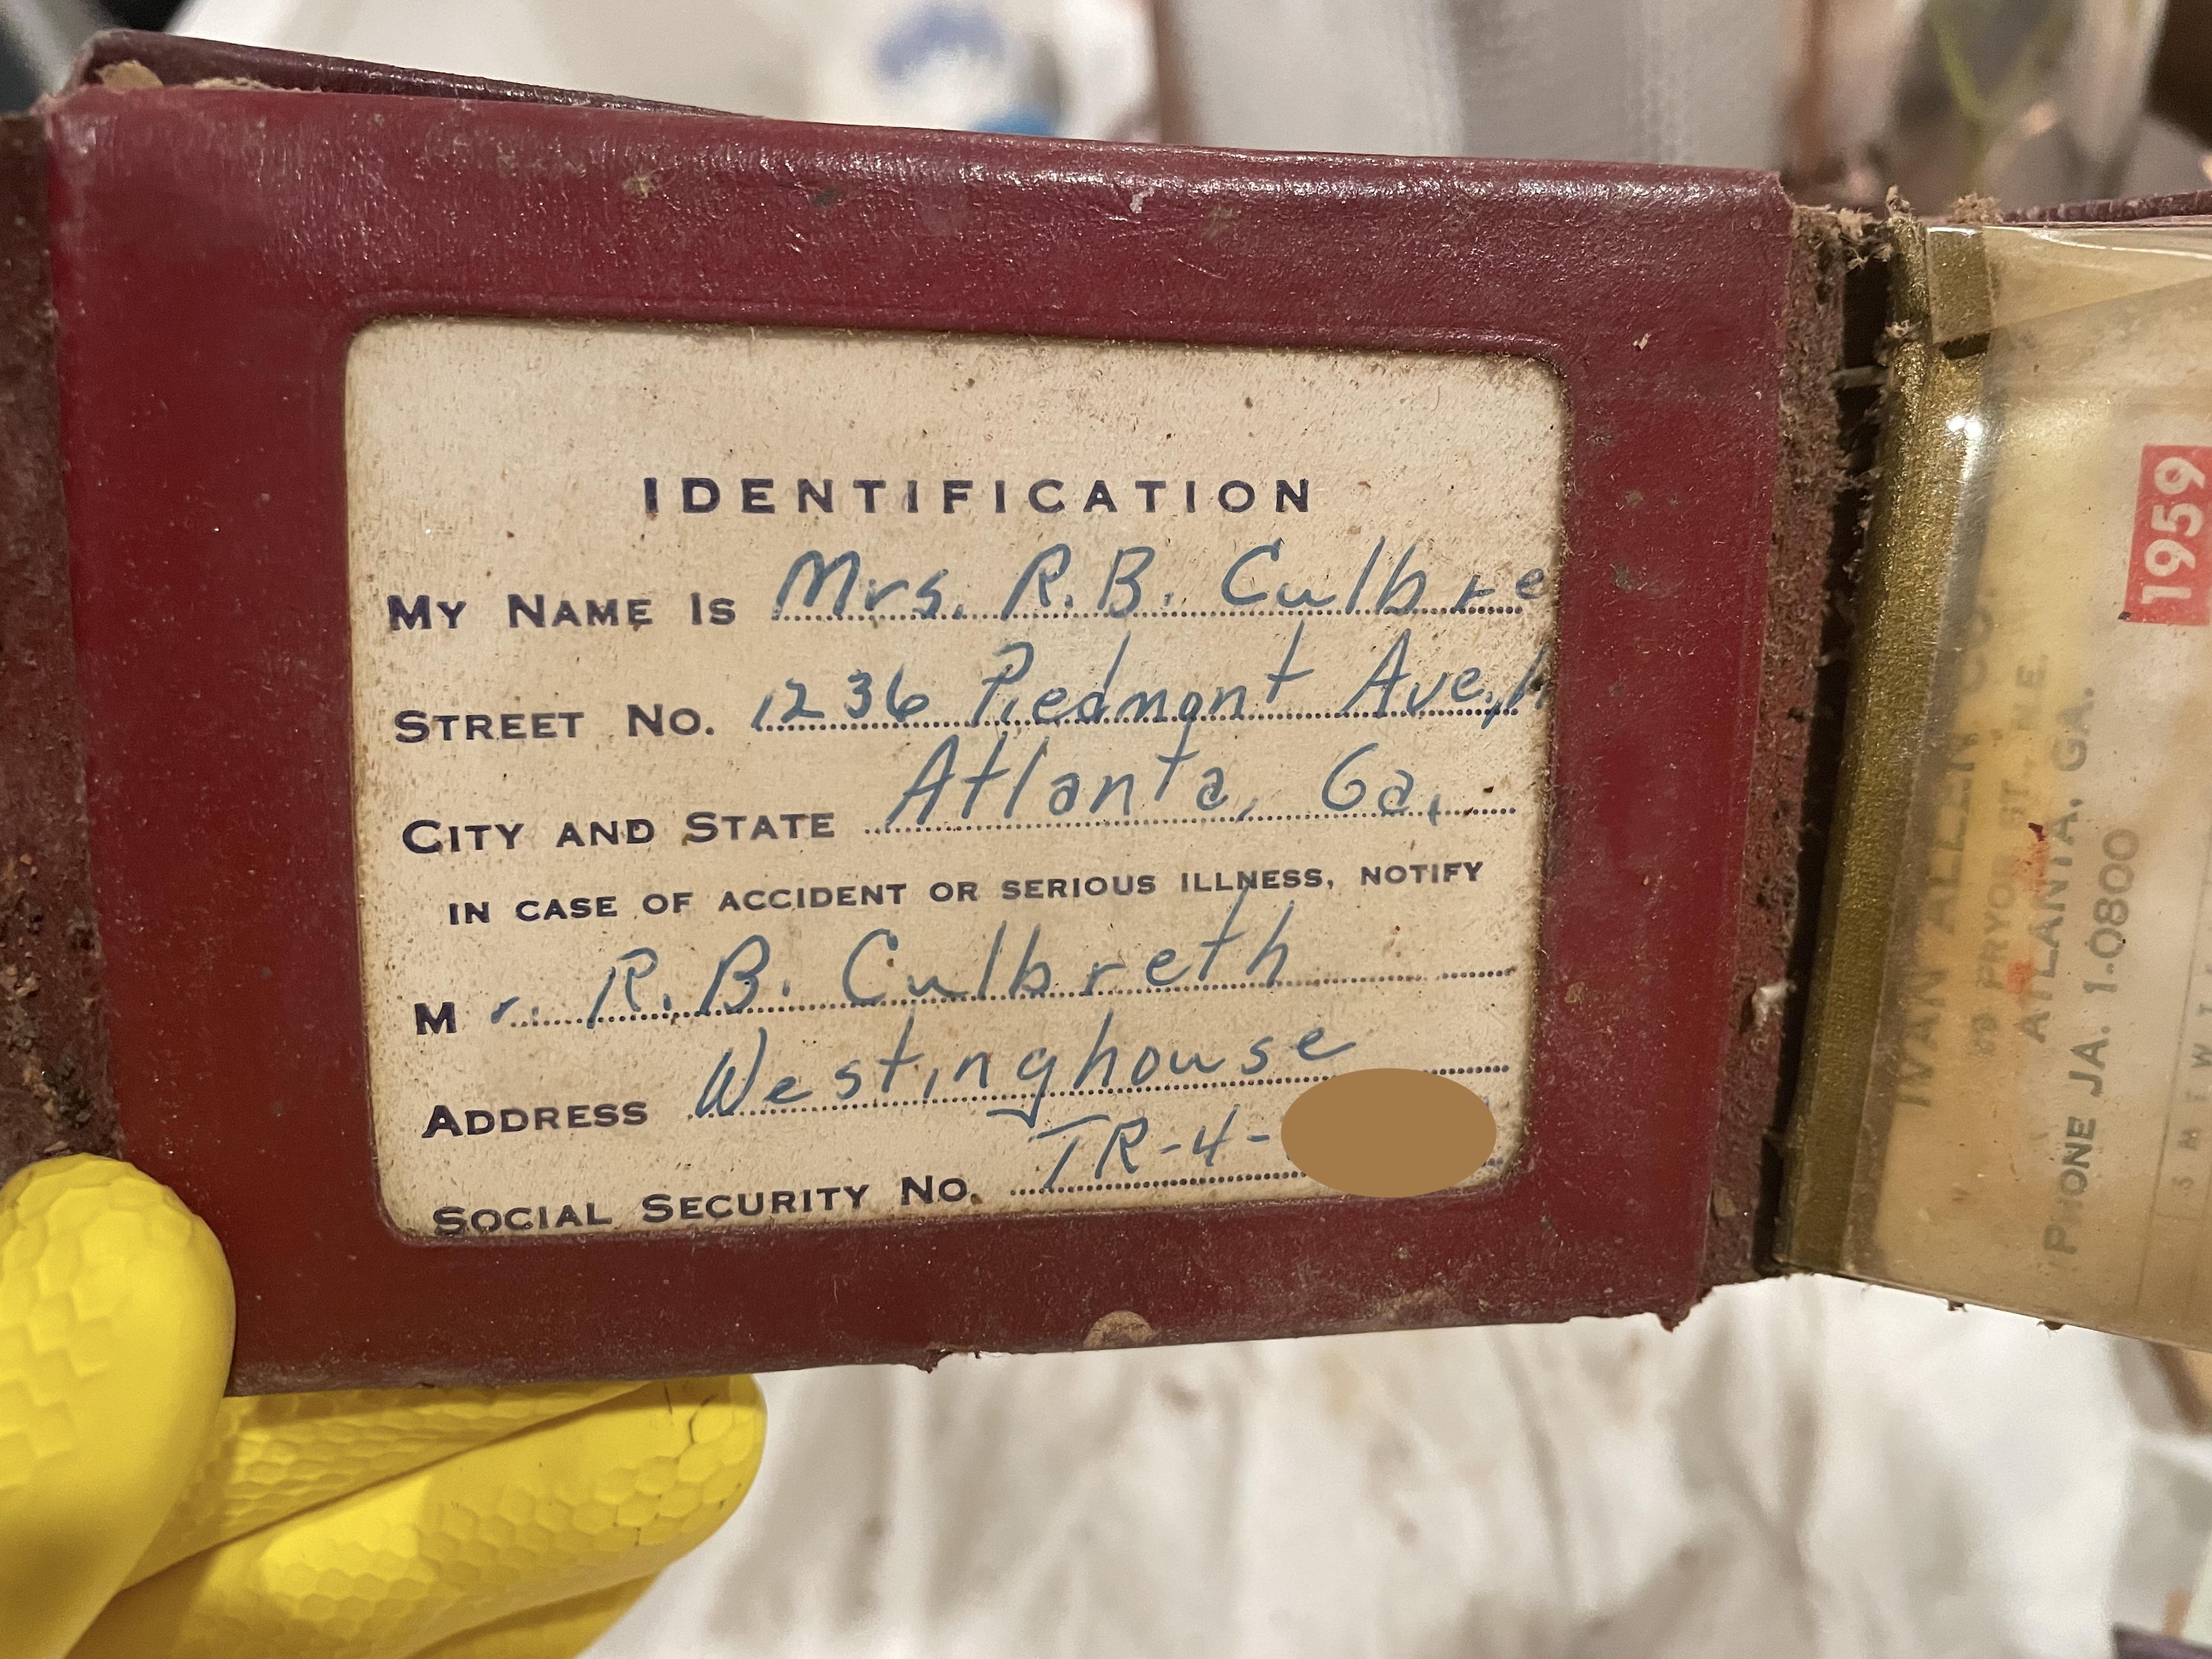 IDENTIFICATION
MY NAME IS Mrs. R.B. Culbre
STREET NO. 1236 Piedmont Ave,
CITY AND STATE Atlanta, Ga.
IN CASE OF ACCIDENT OR SERIOUS ILLNESS, NOTIFY
Mr. R.B. Culbreth
ADDRESS Westinghouse
SOCIAL SECURITY NO. TR-4-
IVAN ALLEN CO.
PRYOR ST., N.E.
ATLANTA, GA.
PHONE JA. 1-0800
1959
S M T W T